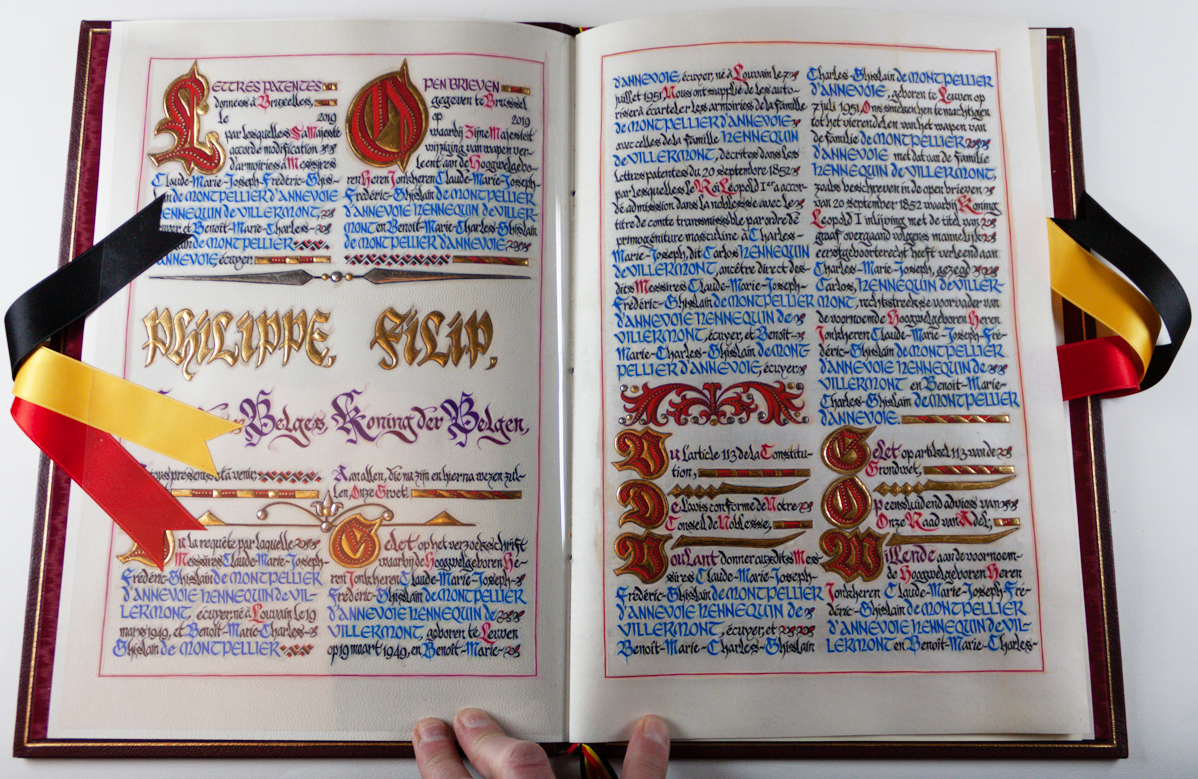 LETTRES PATENTES
données à Bruxelles,
le 2019
par lesquelles Sa Majesté
accorde modification
d'armoiries à Messires
Claude-Marie-Joseph-Frédéric-Ghis-
de MONTPELLIER D'ANNEVOIE
HENNEQUIN DE VILLERMONT,
et Benoît-Marie-Charles-
de MONTPELLIER
D'ANNEVOIE écuyer.
OPEN BRIEVEN
gegeven te Brussel
op 2019
waarbij Zijne Majesteit
wijziging van wapen ver-
leent aan de Hoogwelgebo-
ren Heren Jonkheren Claude-Marie-Joseph-
Frédéric-Ghislain de MONTPELLIER
D'ANNEVOIE HENNEQUIN DE VILLER-
MONT en Benoît-Marie-Charles-Ghislain
de MONTPELLIER D'ANNEVOIE.
PHILIPPE,
FILIP,
Belges,
Koning der Belgen,
tous présents et à venir,
Aan allen, die nu zijn en hierna wezen zul-
len, Onze Groet.
Vu la requête par laquelle
Messires Claude-Marie-Joseph-
Frédéric-Ghislain de MONTPELLIER
D'ANNEVOIE HENNEQUIN DE VIL-
LERMONT, écuyer, né à Louvain le 19
mars 1949, et Benoît-Marie-Charles-
Ghislain de MONTPELLIER
Gelet op het verzoekschrift
waarbij de Hoogwelgeboren He-
ren Jonkheren Claude-Marie-Joseph-
Frédéric-Ghislain de MONTPELLIER
D'ANNEVOIE HENNEQUIN DE
VILLERMONT, geboren te Leuven
op 19 maart 1949, en Benoît-Marie-
D'ANNEVOIE, écuyer, né à Louvain le 2
juillet 1951 Nous ont supplié de les auto-
riser à écarteler les armoiries de la famille
DE MONTPELLIER D'ANNEVOIE
avec celles de la famille HENNEQUIN
DE VILLERMONT, décrites dans les
lettres patentes du 20 septembre 1852
par lesquelles le Roi Léopold Ier a accor-
dé admission dans la noblesse avec le
titre de comte transmissible par ordre de
primogéniture masculine à Charles-
Marie-Joseph, dit Carlos HENNEQUIN
DE VILLERMONT, ancêtre direct des-
dits Messires Claude-Marie-Joseph-
Frédéric-Ghislain de MONTPELLIER
D'ANNEVOIE HENNEQUIN DE
VILLERMONT, écuyer, et Benoît-
Marie-Charles-Ghislain de MONT
PELLIER D'ANNEVOIE, écuyer,
Vu l'article 113 de la Constitu-
tion,
De l'avis conforme de Notre
Conseil de Noblesse,
Voulant donner auxdits Mes-
sires Claude-Marie-Joseph-
Frédéric-Ghislain de MONTPELLIER
D'ANNEVOIE HENNEQUIN DE
VILLERMONT, écuyer, et
Benoît-Marie-Charles-Ghislain
Charles-Ghislain de MONTPELLIER
D'ANNEVOIE, geboren te Leuven op
2 juli 1951 Ons smeekten hen te machtigen
tot het vierendelen van het wapen van
de familie DE MONTPELLIER
D'ANNEVOIE met dat van de familie
HENNEQUIN DE VILLERMONT,
zoals beschreven in de open brieven
van 20 september 1852 waarbij Koning
Leopold I inlijving met de titel van
graaf overgaand volgens mannelijk
eerstgeboorterecht heeft verleend aan
Charles-Marie-Joseph, gezegd
Carlos, HENNEQUIN DE VILLER-
MONT, rechtstreekse voorvader van
de voornoemde Hoogwelgeboren Heren
Jonkheren Claude-Marie-Joseph-Fré-
déric-Ghislain de MONTPELLIER
D'ANNEVOIE HENNEQUIN DE
VILLERMONT en Benoît-Marie-
Charles-Ghislain de MONTPELLIER
D'ANNEVOIE.
Gelet op artikel 113 van de
Grondwet,
Op eensluidend advies van
Onze Raad van Adel,
Willende aan de voornoem-
de Hoogwelgeboren Heren
Jonkheren Claude-Marie-Joseph-Fré-
déric-Ghislain de MONTPELLIER
D'ANNEVOIE HENNEQUIN DE VIL-
LERMONT en Benoît-Marie-Charles-